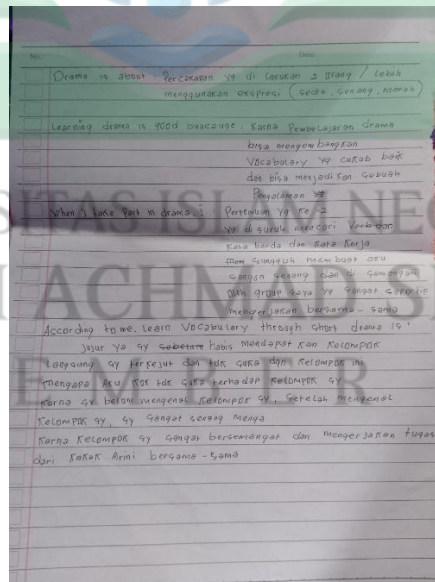 No.: Date:
Drama is about : Percakapan yg di lakukan 2 orang / lebih
menggunakan ekspresi (sedih, senang, marah)
Learning drama is good beacause : Karna Pembelajaran drama
bisa mengembangkan
Vocabulary yg cukup baik
dan bisa menjadi kan sebuah
Pengalaman
When I take Part in drama : Pertemuan yg ke 2
yg di suruh mencari
Kata benda dan Kata Kerja
sungguh membuat aku
sangan senang dan di
oleh group saya yg sangat
mengerjakan bersama - sama
According to me. Learn Vocabulary through short drama is :
Jujur ya sy habis mendapat kan Kelompok
Langsung sy terkejut dan tdk suka dgn Kelompok ini
mengapa Aku Kok tdk suka terhadap Kelompok sy
Karna sy belom mengenal Kelompok sy, setelah mengenal
Kelompok sy, sy sangat senang
Karna Kelompok sy sangat bersemangat dan mengerjakan tugas
dari Kakak Arini bersama - sama
SITAS ISLAM NEGE
I ACHMAD SI
E M B E R